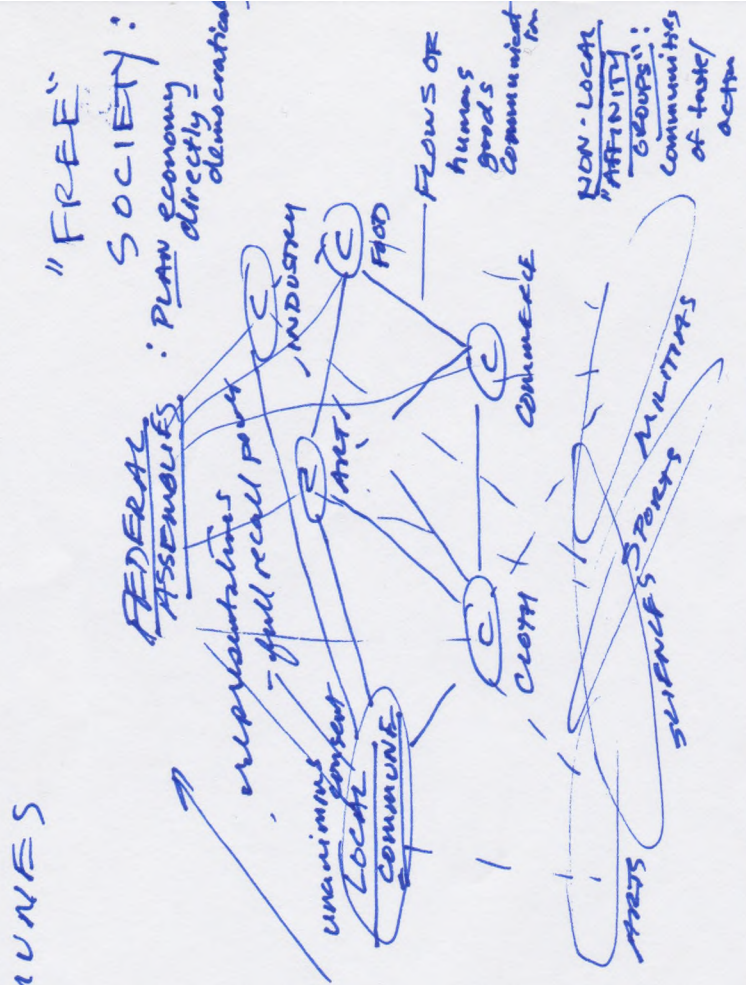 "FREE"
SOCIETY:
: PLAN economy
directly =
democratical
FEDERAL
ASSEMBLIES
representatives
- full recall power
unanimous
consent
LOCAL
COMMUNE
C
INDUSTRY
C
FOOD
C
ART
C
COMMERCE
C
CLOTH
FLOWS OF
humans
goods
communication
NON-LOCAL
"AFFINITY
GROUPS":
communities
of taste/
action
ARTS
SCIENCES
SPORTS
MILITIAS
UNES